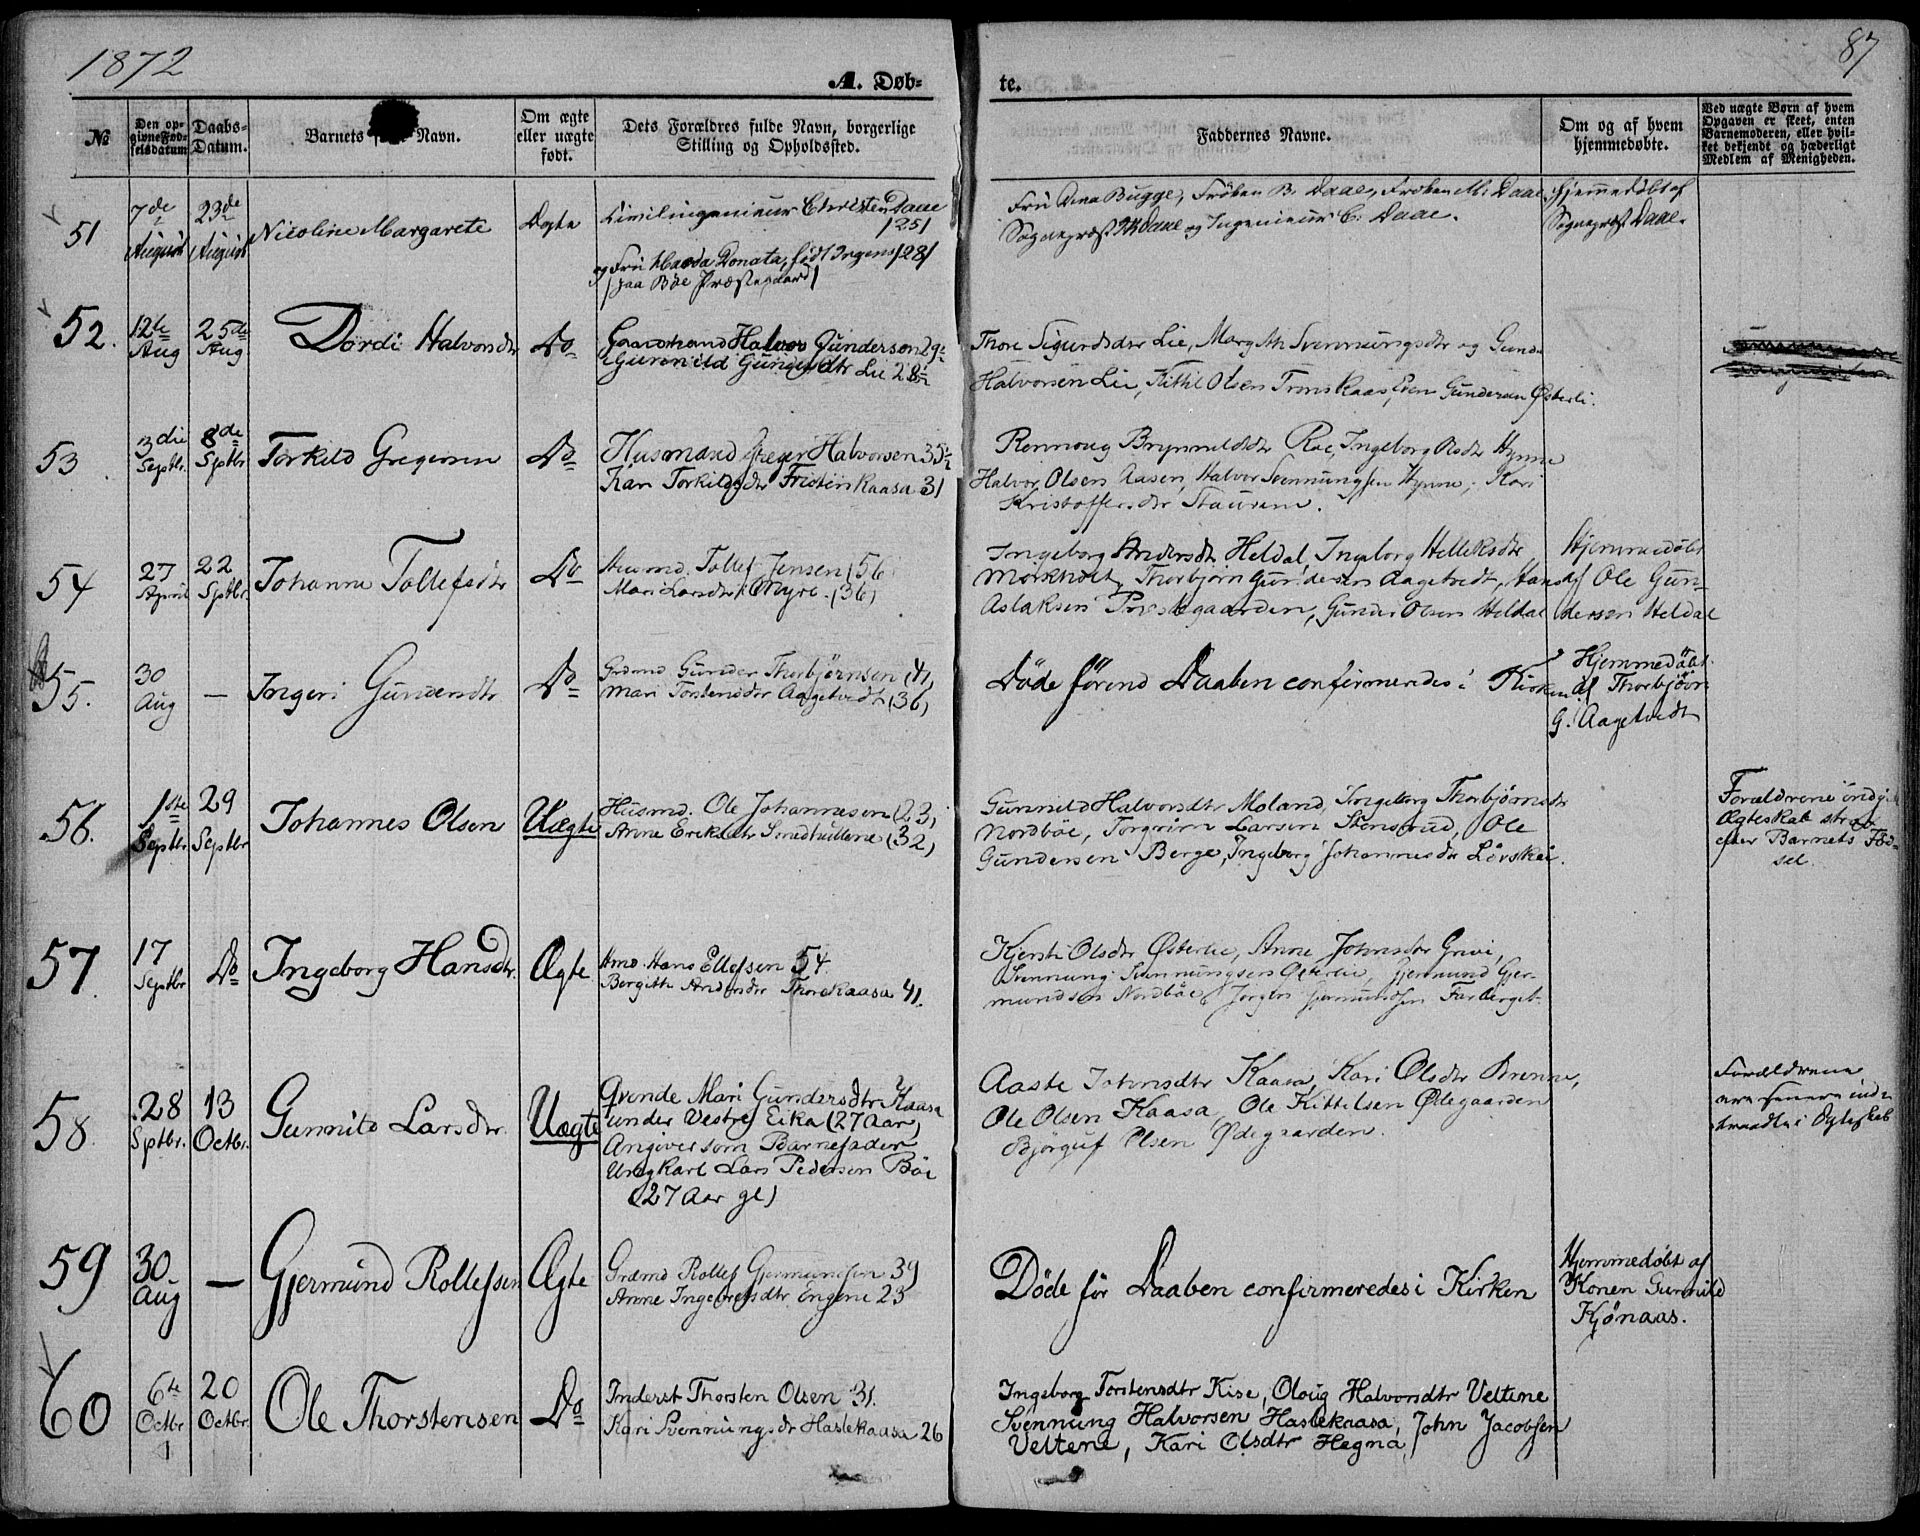 1872
87
A. Døb-
te.
No
Den op-
givne Fød-
selsdatum
Daabs-
Datum.
Barnets Navn.
Om ægte
eller uægte
født.
Dets Forældres fulde Navn, borgerlige
Stilling og Opholdssted.
Faddernes Navne.
Om og af hvem
hjemmedøbte.
Ved uægte Børn af hvem
Opgaven er skeet, enten
Barnemoderen, eller hvil-
ket bekjendt og hæderligt
Medlem af Menigheden.
51
7de
August
23de
August
Nicoline Margarete
Civilingenieur Christen Daae
og Fru Donata, født Irgens /28/
/paa Bøe Præstegaard/
Fru Anna Bugge, Frøken B. Daae, Frøken M. Daae
Sognepræst Daae og Ingenieur C. Daae.
Hjemmedøbt af
Sognepræst Daae.
52.
12te
Aug
25de
Aug
Dordi Halvorsdtr
Do
Gaardmand Halvor Gunderson 29
Gunnild Lie 28½
Thore Sigurdsdtr Lie, Margith Svennungsdtr og Gunder
Halvorsen Lie, Kittil Olsen, Even Gundersen Østerli.
53
3die
Septbr.
8de
Sptbr
Torkild Gregersen
Do
Husmand Greger Halvorsen 35½
Kari Torkildsdtr Fristinkaasa 31
Rennoug Brynnildsdtr Roe, Ingeborg Olsdtr Hynne
Halvor Olsen Aasen, Halvor Svennungsen Hynne, Kari
Kristoffersdtr Staurem.
54
27
April
22
Sptbr.
Johanne Tollefsdtr
Do
Husmd. Tollef Jensen (56)
Mari Larsdtr Myre. (36)
Ingeborg Andersdtr Heldal, Ingeborg Helleksdtr
Mørkholt, Thorbjørn Gundersen Aagetvedt, Hans
Aslaksen Præstegaarden, Gunder Olsen Heldal
Hjemmedøbt
af Ole Gun-
dersen Heldal
55.
30
Aug
—
Ingeri Gundersdtr
Do
Grdmd Gunder Thorbjørnsen (41)
Mari Torstensdtr Aagetvedt (36)
Døde førend Daaben confirmeredes i Kirken
Hjemmedøbt
af Thorbjørn
G. Aagetvedt
56.
1ste
Septbr
29
Septbr
Johannes Olsen
Uægte
Husmd. Ole Johannesen (23)
Anne Eriksdtr (32)
Gunnild Halvorsdtr Moland, Ingeborg Thorbjørnsdtr
Nordbøe, Torgrim Larsen Stensrud, Ole
Gundersen Berge, Ingeborg Johannesdtr
Forældrene indgik
Ægteskab strax
efter Barnets Fød-
sel.
57.
17
Septbr
Do
Ingeborg Hansdtr.
Ægte
Hmd. Hans Ellefsen 54.
Bergith Andersdtr Thorekaasa 41.
Kjersti Olsdtr Østerlie, Anne Johnsdtr
Svennung Svennungsen Østerlie, Gjermund Gjer-
mundsen Nordbøe, Jørgen Gjermundsen
58.
28
Sptbr.
13
Octbr.
Gunnild Larsdtr.
Uægte
Qvinde Mari Gundersdtr Kaasa
under Vestre Eika (27 Aar)
Angiver som Barnefader
Ungkarl Lars Pedersen Bøe
(27 Aar gl)
Aaste Johnsdtr Kaasa, Kari Olsdtr Brenne,
Ole Olsen Kaasa, Ole Kittelsen Ødegaarden
Bjørguf Olsen Ødegaarden.
Forældrene
ere senere ind-
traadte i Ægteskab
59
30
Aug
—
Gjermund Rollefsen
Ægte
Grdmd Rollef Gjermundsen 39
Anne Ingebretsdtr Engene 23
Døde før Daaben confirmeredes i Kirken
Hjemmedøbt af
Konen Gunnild
Kjønaas.
60
6te
Octbr
20
Octbr.
Ole Thorstensen
Do
Inderst Thorsten Olsen 31.
Kari Svennungsdr Haslekaasa 26
Ingeborg Torstensdtr Kise, Oloug Halvorsdtr Veltene
Svennung Halvorsen Haslekaasa, John Jacobsen
Veltene, Kari Olsdtr Hegna